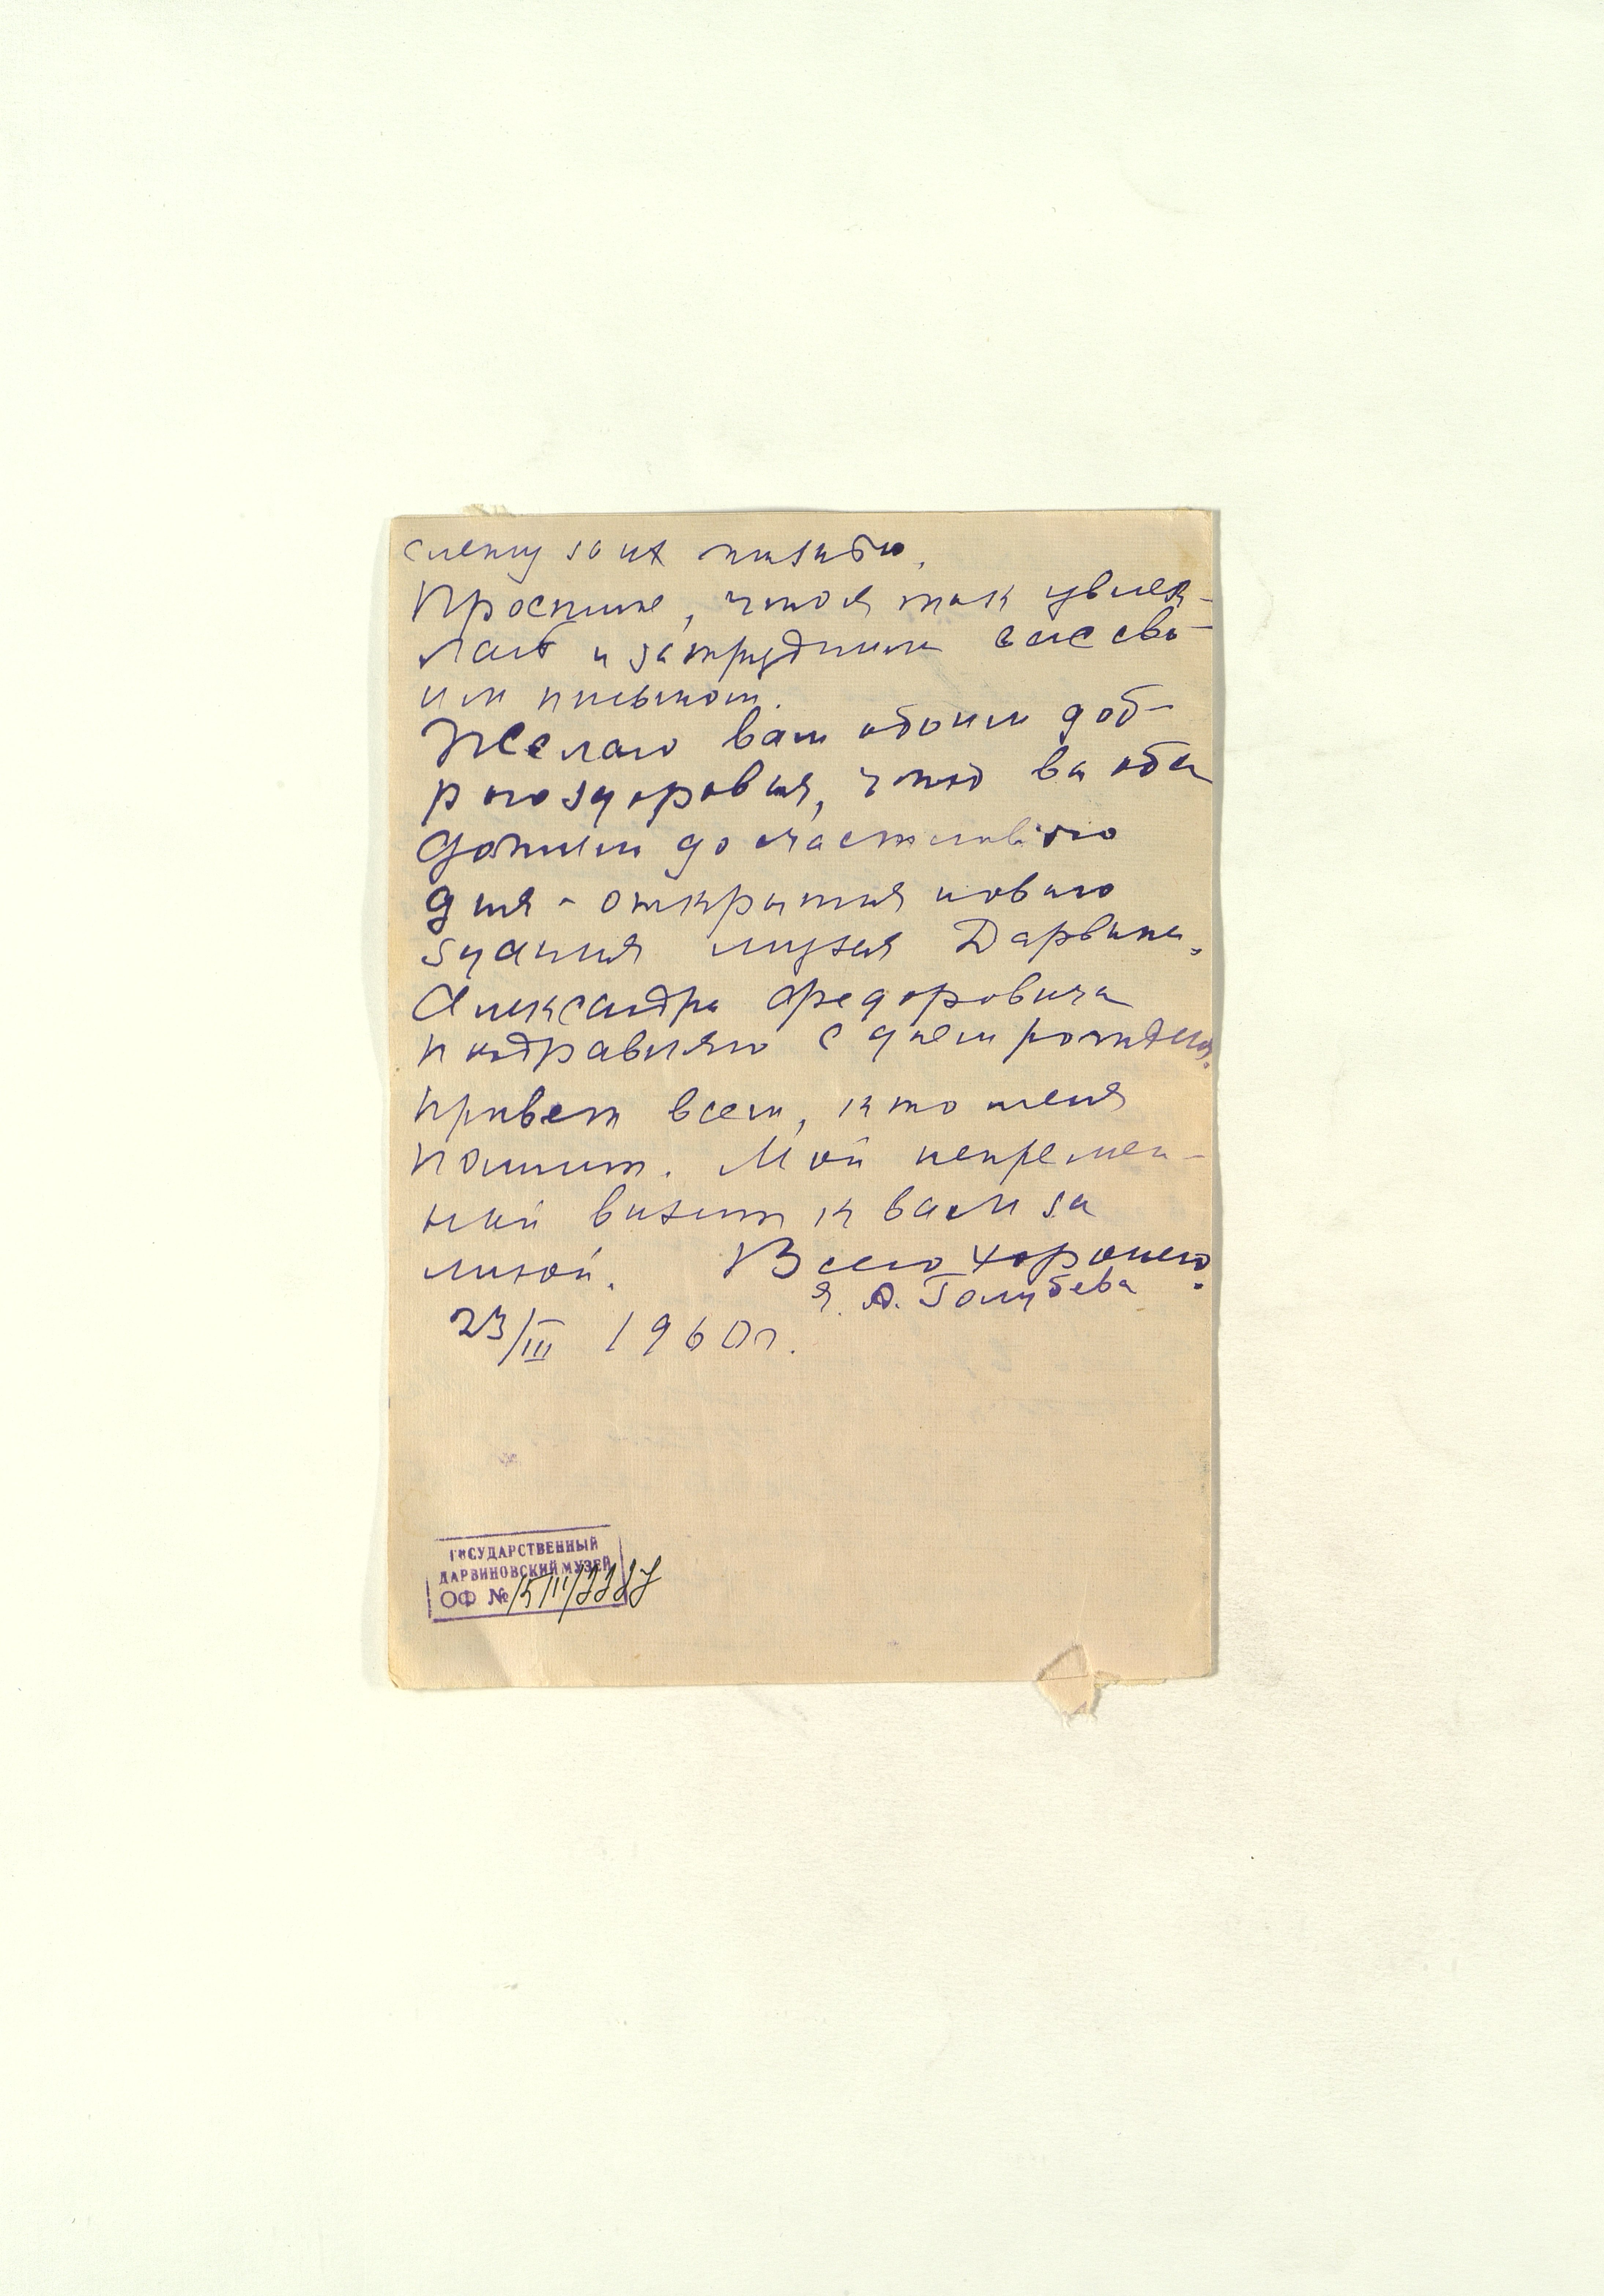 слежу за их жизнью.
Простите, что я так увлек-
лась и затруднила вас сво-
им письмом.
Желаю вам обоим доб-
рого здоровья, чтоб вы оба
дожили до счастливого
дня - открытия нового
здания музея Дарвина.
Александра Федоровича
поздравляю с днем рождения.
Привет всем, кто меня
помнит. Мой непремен-
ный визит к вам за
мной. Всего хорошего.
Я. А. Голубева
23/III 1960 г.
ГОСУДАРСТВЕННЫЙ
ДАРВИНОВСКИЙ МУЗЕЙ
ОФ №